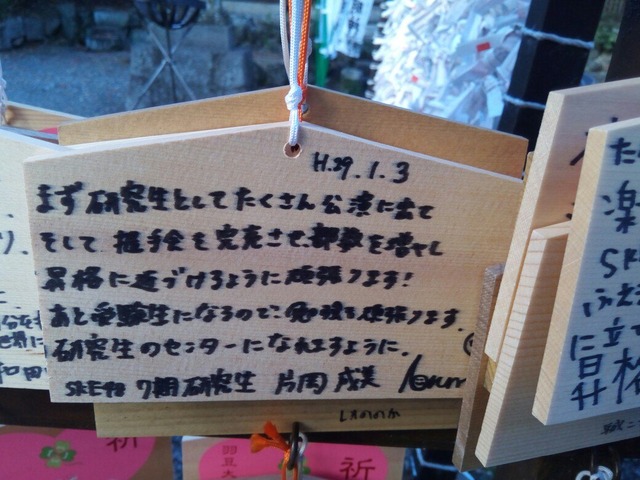 H.29.1.3
まず研究生としてたくさん公演に出て
そして握手会も完売させ、部数を増やし
昇格に近づけるように頑張ります!
あと受験生になるので、勉強も頑張ります。
研究生のセンターになれますように。
SKE48 7期研究生 片岡成美
祈
祈
た
楽
SK
ふえ
に立
昇格
和田